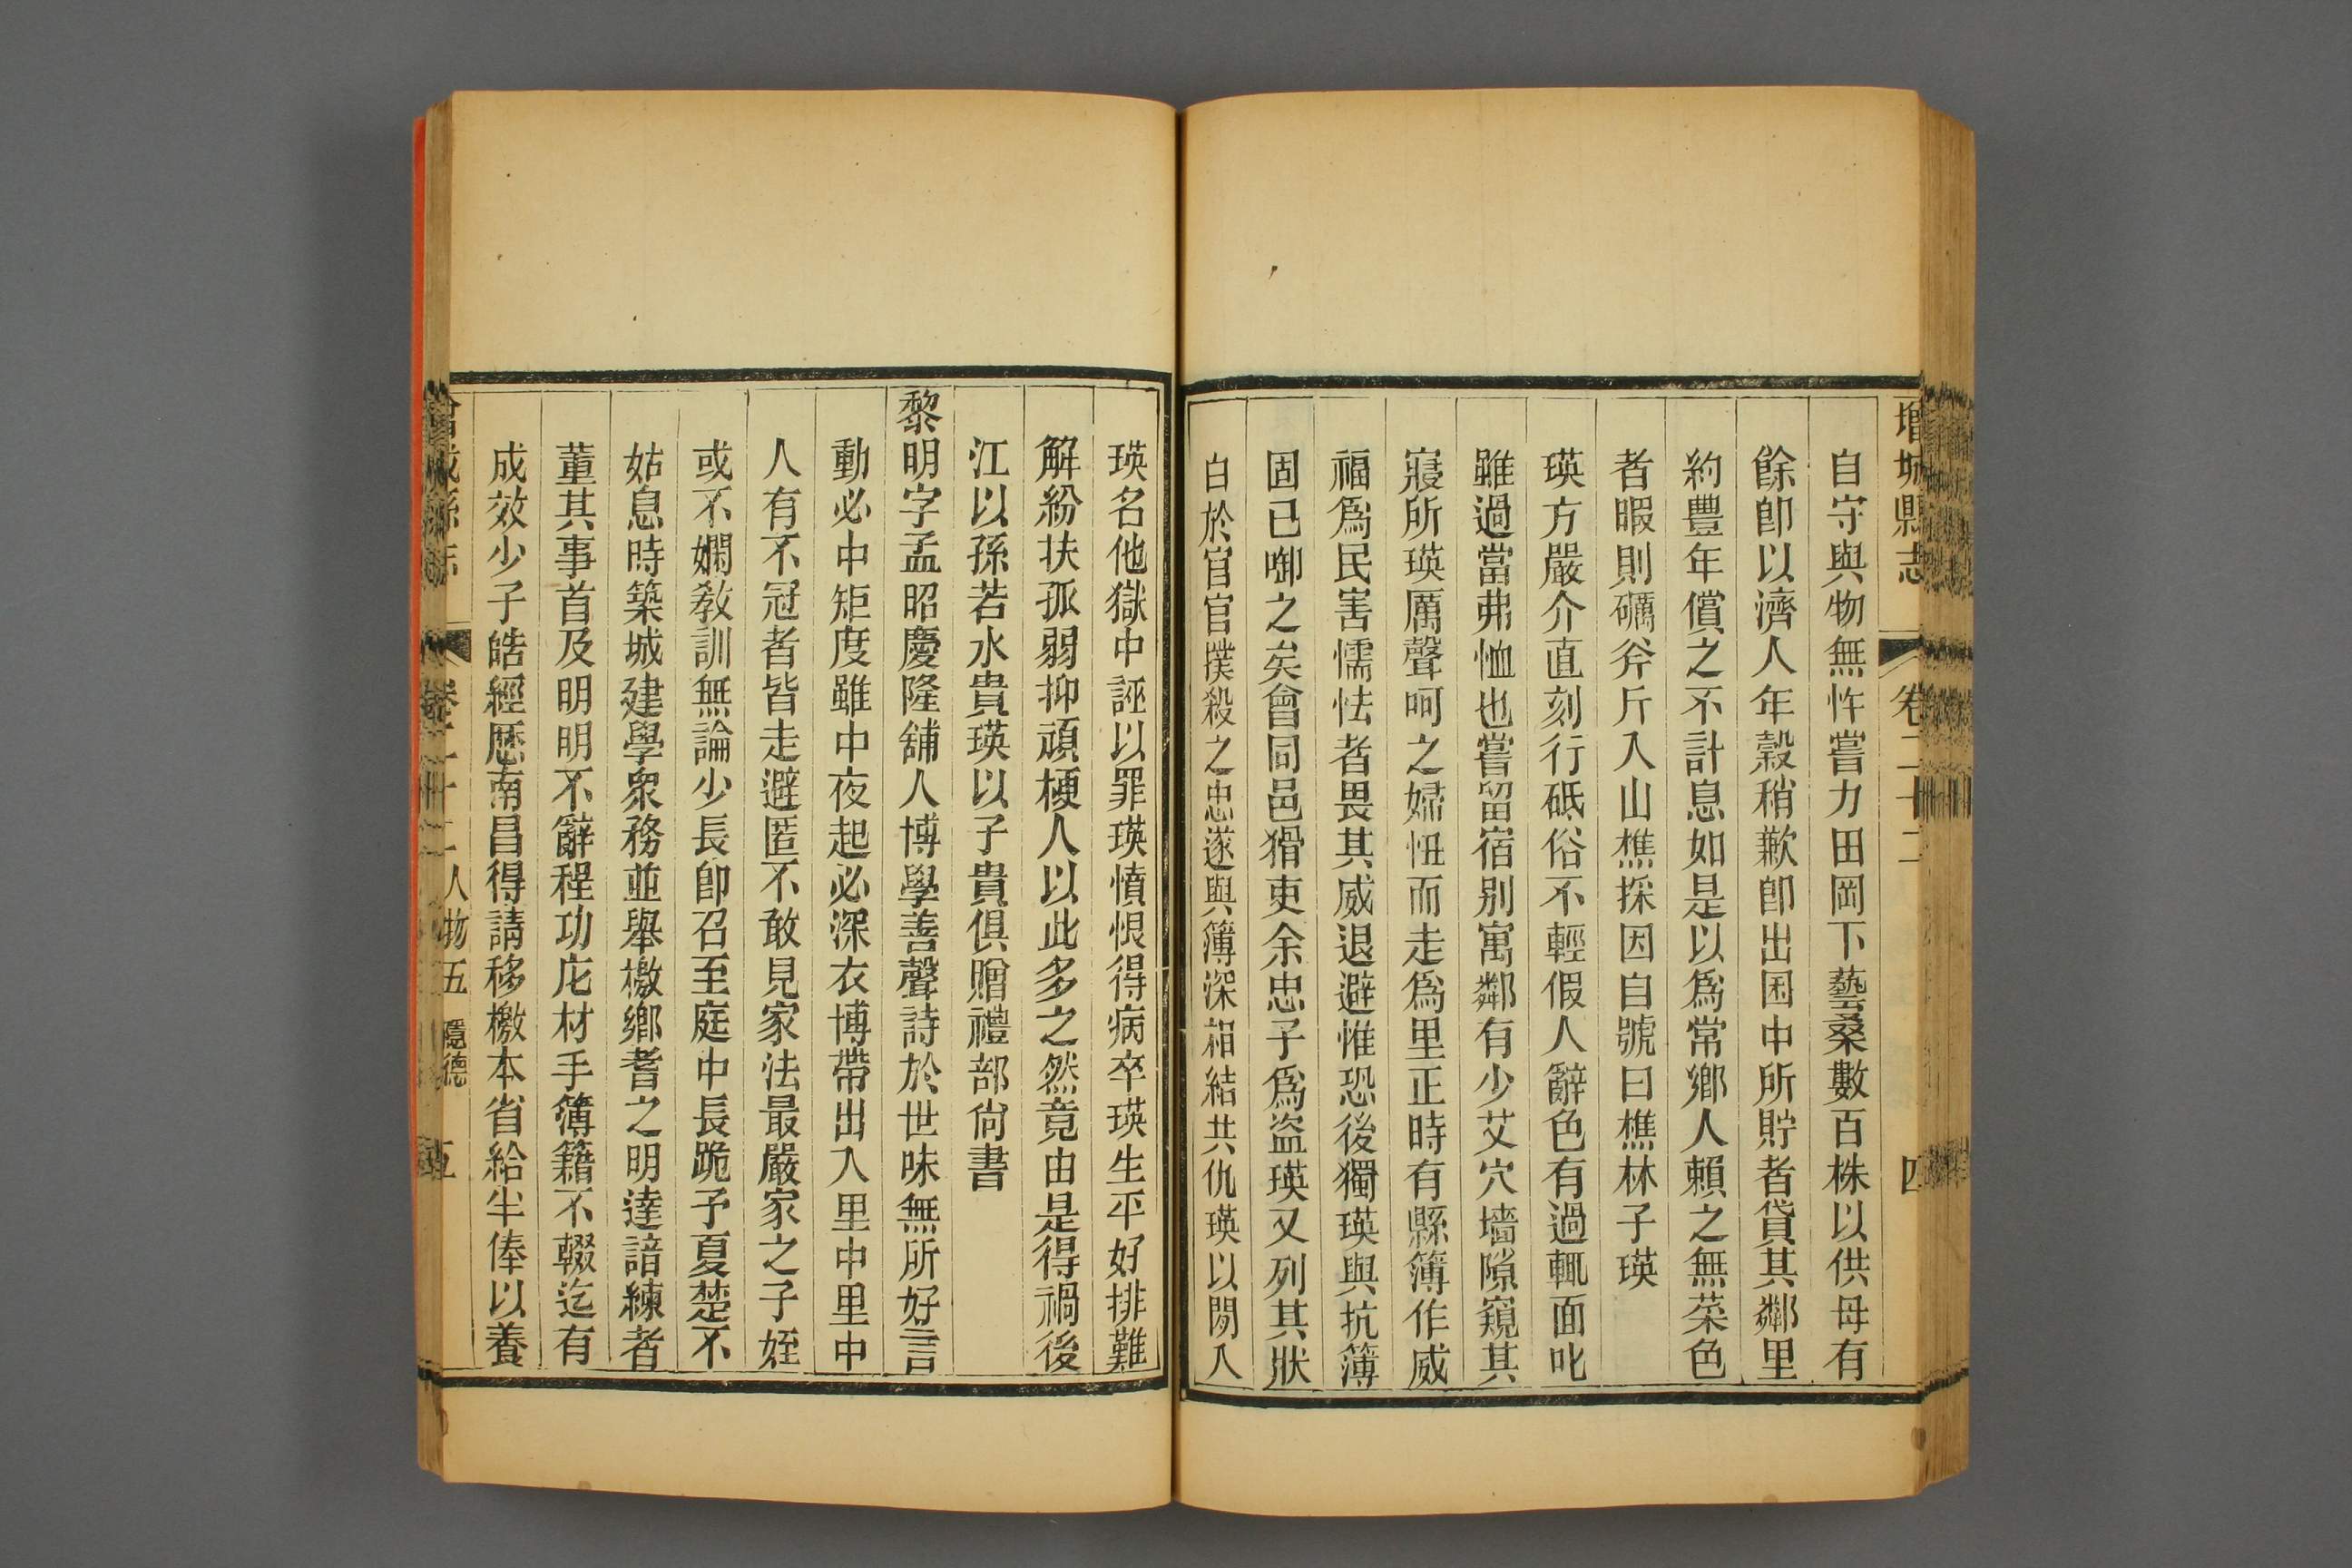 增城縣志
卷二十二
四
自守與物無忤嘗力田岡下藝桑數百株以供母有
餘卽以濟人年穀稍歉卽出囷中所貯者貸其鄰里
約豐年償之不計息如是以爲常鄉人賴之無菜色
者暇則礪斧斤入山樵採因自號曰樵林子瑛
瑛方嚴介直刻行砥俗不輕假人辭色有過輒面叱
雖過當弗恤也嘗留宿别寓鄰有少艾穴墻隙窺其
寢所瑛厲聲呵之婦忸而走爲里正時有縣簿作威
福爲民害懦怯者畏其威退避惟恐後獨瑛與抗簿
固已啣之矣會同邑猾吏余忠子爲盗瑛又列其狀
白於官官撲殺之忠遂與簿深相結共仇瑛以閒入
瑛名他獄中誣以罪瑛憤恨得病卒瑛生平好排難
解紛扶孤弱抑頑梗人以此多之然竟由是得禍後
江以孫若水貴瑛以子貴俱贈禮部尙書
黎明字孟昭慶隆舖人博學善聲詩於世味無所好言
動必中矩度雖中夜起必深衣博帶出入里中里中
人有不冠者皆走避匿不敢見家法最嚴家之子姪
或不嫻敎訓無論少長卽召至庭中長跪予夏楚不
姑息時築城建學衆務並舉檄鄉耆之明達諳練者
董其事首及明明不辭程功庀材手簿籍不輟迄有
成效少子皓經歷南昌得請移檄本省給半俸以養
卷二十二 人物五 隱德
五